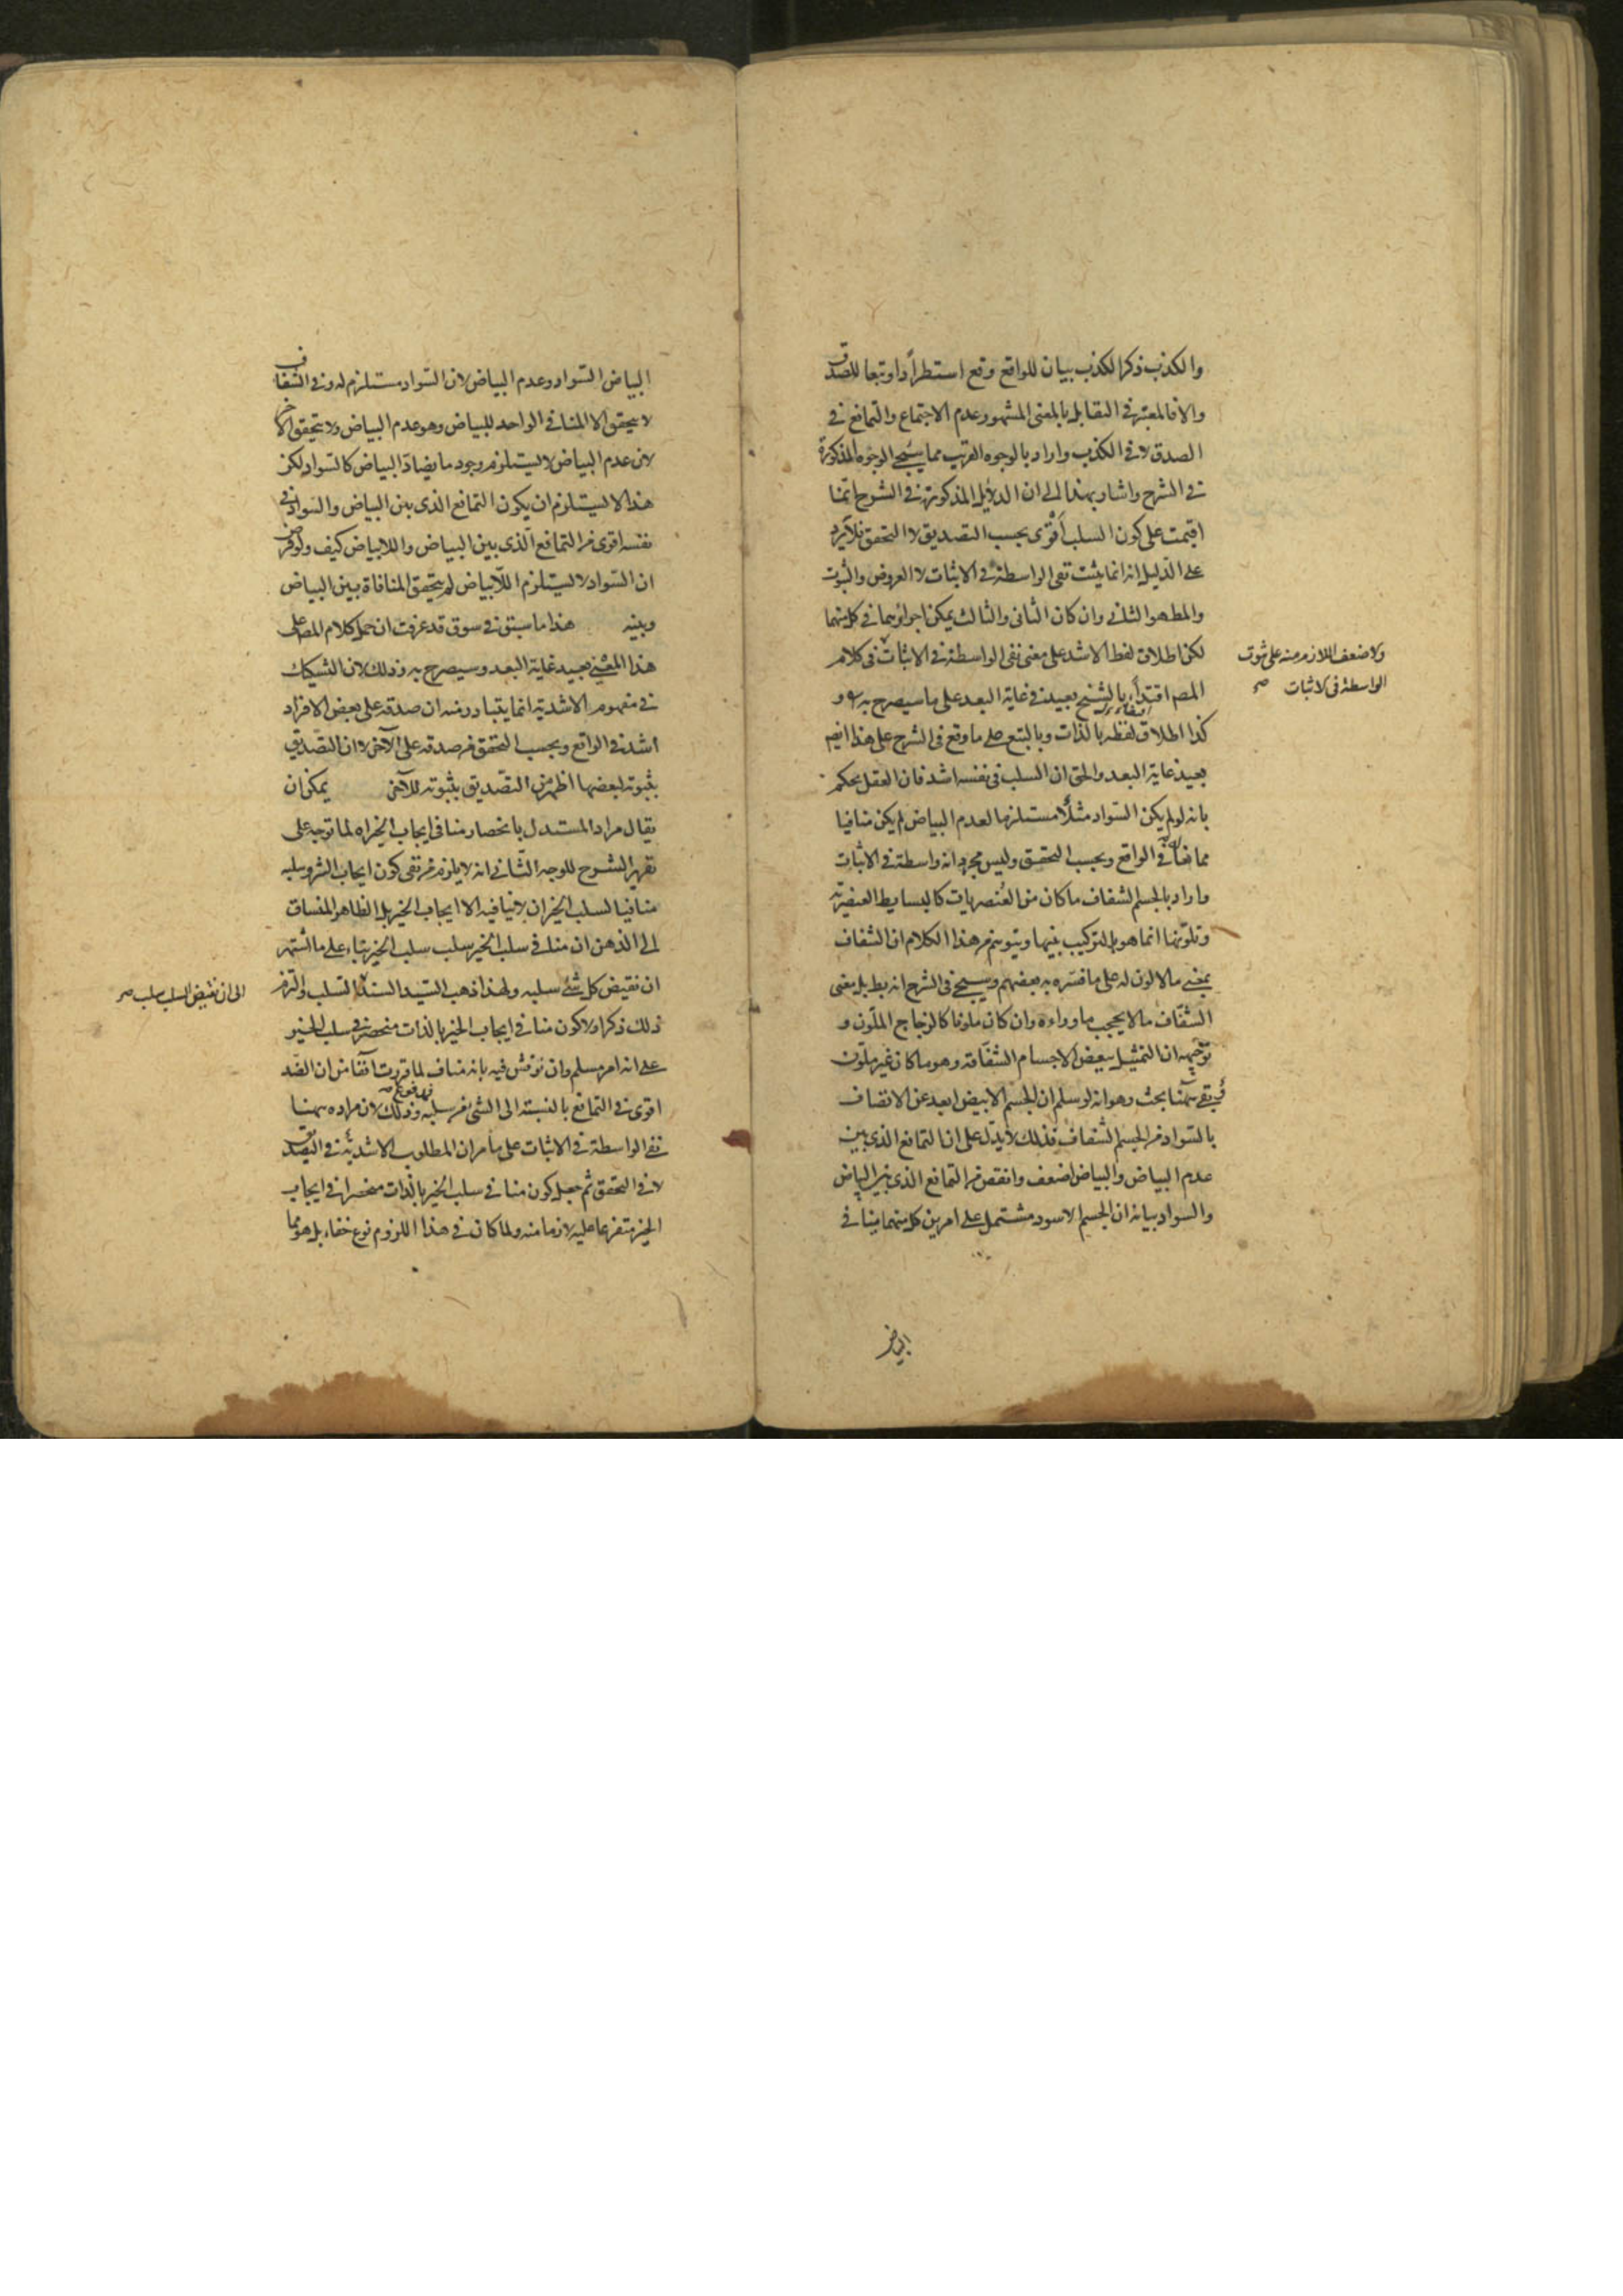 والكذب ذكر الكذب بيان للواقع وقع استطراداً وتبعا للصدق
والا فالمعتبر في التقابل بالمعنى المشهور عدم الاجتماع والتمانع في
الصدق لا في الكذب واراد بالوجوه القريب مما سيجئ الوجوه المذكورة
في الشرح واشار بهذا الى ان الدلايل المذكورة في الشرح انما
اقيمت على كون السلب أقوى بحسب التصديق لا التحقق فلا يرد
على الدليل انه انما يثبت نفى الواسطة في الاثبات لا العروض والثبوت
والمط هو الثاني وان كان الثاني والثالث يمكن اجراؤهما في كل منهما
لكن اطلاق لفظ الاشد على معنى نفى الواسطة في الاثبات في كلام
ولا ضعف اللازم منه على ثبوت
الواسطة في الاثبات صح
المص اقتداءً بالشيخ بعيد في غاية البعد على ما سيصرح به و
كذا اطلاق لفظ بالذات وبالتبع على ما وقع في الشرح على هذا ايضا
بعيد غاية البعد والحق ان السلب في نفسه اشد فان العقل يحكم
بانه لو لم يكن السواد مثلاً مستلزما لعدم البياض لم يكن منافيا
ممانعا في الواقع وبحسب التحقق وليس مجرد انه واسطة في الاثبات
واراد بالجسم الشفاف ما كان من العنصريات كالبسايط العنصرية
وتلونها انما هو بالتركيب بينها ويتوهم من هذا الكلام ان الشفاف
بمعنى ما لا لون له على ما فسره به بعضهم وسيجئ في الشرح انه بط بل معنى
الشفاف ما لا يحجب ما وراءه وان كان ملونا كالزجاج الملون و
توجيهه ان التمثيل ببعض الاجسام الشفافة وهو ما كان غير ملون
بقى هنا بحث وهو انه لو سلم ان الجسم الابيض ابعد عن الاتصاف
بالسواد من الجسم الشفاف فذلك لا يدل على ان التمانع الذي بين
عدم البياض والبياض اضعف وانقص من التمانع الذي بين البياض
والسواد بيانه ان الجسم الاسود مشتمل على امرين كل منهما ينافي
البياض
البياض السواد وعدم البياض لان السواد مستلزم له وفي الشفاف
لا يتحقق الا المنافي الواحد للبياض وهو عدم البياض ولا يتحقق الآخر
لان عدم البياض لا يستلزم وجود ما يضاد البياض كالسواد لكن
هذا لا يستلزم ان يكون التمانع الذي بين البياض والسواد في
نفسه اقوى من التمانع الذي بين البياض واللابياض كيف ولو فرض
ان السواد لا يستلزم اللابياض لم يتحقق المنافاة بين البياض
وبينه هذا ما سبق في سوق قد عرفت ان حمل كلام المص على
هذا المعنى بعيد غاية البعد وسيصرح به وذلك لان التشكيك
في مفهوم الاشدية انما يتبادر منه ان صدقه على بعض الافراد
اشد في الواقع وبحسب التحقق من صدقه على الآخر لا ان التصديق
بثبوته لبعضها اظهر من التصديق بثبوته للآخر يمكن ان
يقال مراد المستدل بانحصار منافي ايجاب الخير اه لما توجه على
تقرير الشرح للوجه الثاني انه لا يلزم من نفى كون ايجاب الشر وسلبه
منافيا لسلب الخير ان لا ينافيه الا ايجاب الخير بل الظاهر المنساق
الى الذهن ان منافي سلب الخير سلب سلب الخير بناء على ما اشتهر
ان نقيض كل شئ سلبه ولهذا ذهب السيد السند السلب والتزم
الى ان نقيض السلب سلب صح
ذلك ذكر اولا كون منافي ايجاب الخير بالذات منحصر في سلب الخير
على انه امر مسلم وان نوقش فيه بانه مناف لما قررت آنفا من ان الضد
اقوى في التمانع بالنسبة الى الشئ من سلبه فمدفوع وذلك لان مراده ههنا
نفى الواسطة في الاثبات على ما مر ان المطلوب الاشدية في التصديق
لا في التحقق ثم جعل كون منافي سلب الخير بالذات منحصرا في ايجاب
الخير متفرعا عليه لازما منه ولما كان في هذا اللزوم نوع خفاء بل هو مما